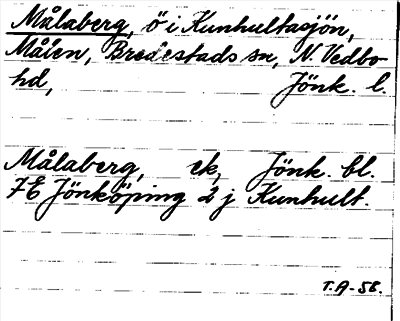 Målaberg, ö i Kunhultasjön,
Målen, Bredestads sn, N. Vedbo
hd, Jönk. l.
Målaberg, ek, Jönk. bl.
7E Jönköping 2 j Kunhult.
T.A-58.